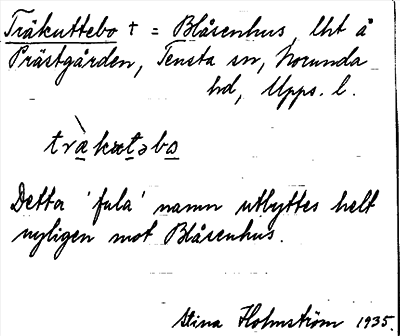 Träkuttebo † = Blåsenhus, lht å
Prästgården, Tensta sn, Norunda
hd, Upps. l.
tràkutəbo
Detta 'fula' namn utbyttes helt
nyligen mot Blåsenhus.
Stina Holmström 1935.